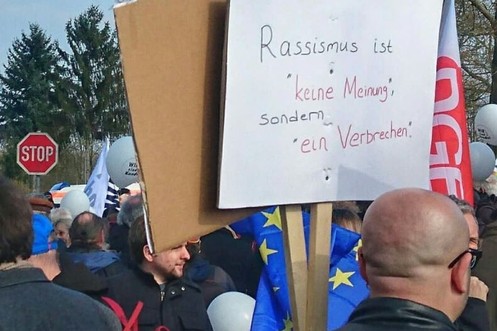 Rassismus ist
"keine Meinung",
sondern
"ein Verbrechen."
STOP
DGB